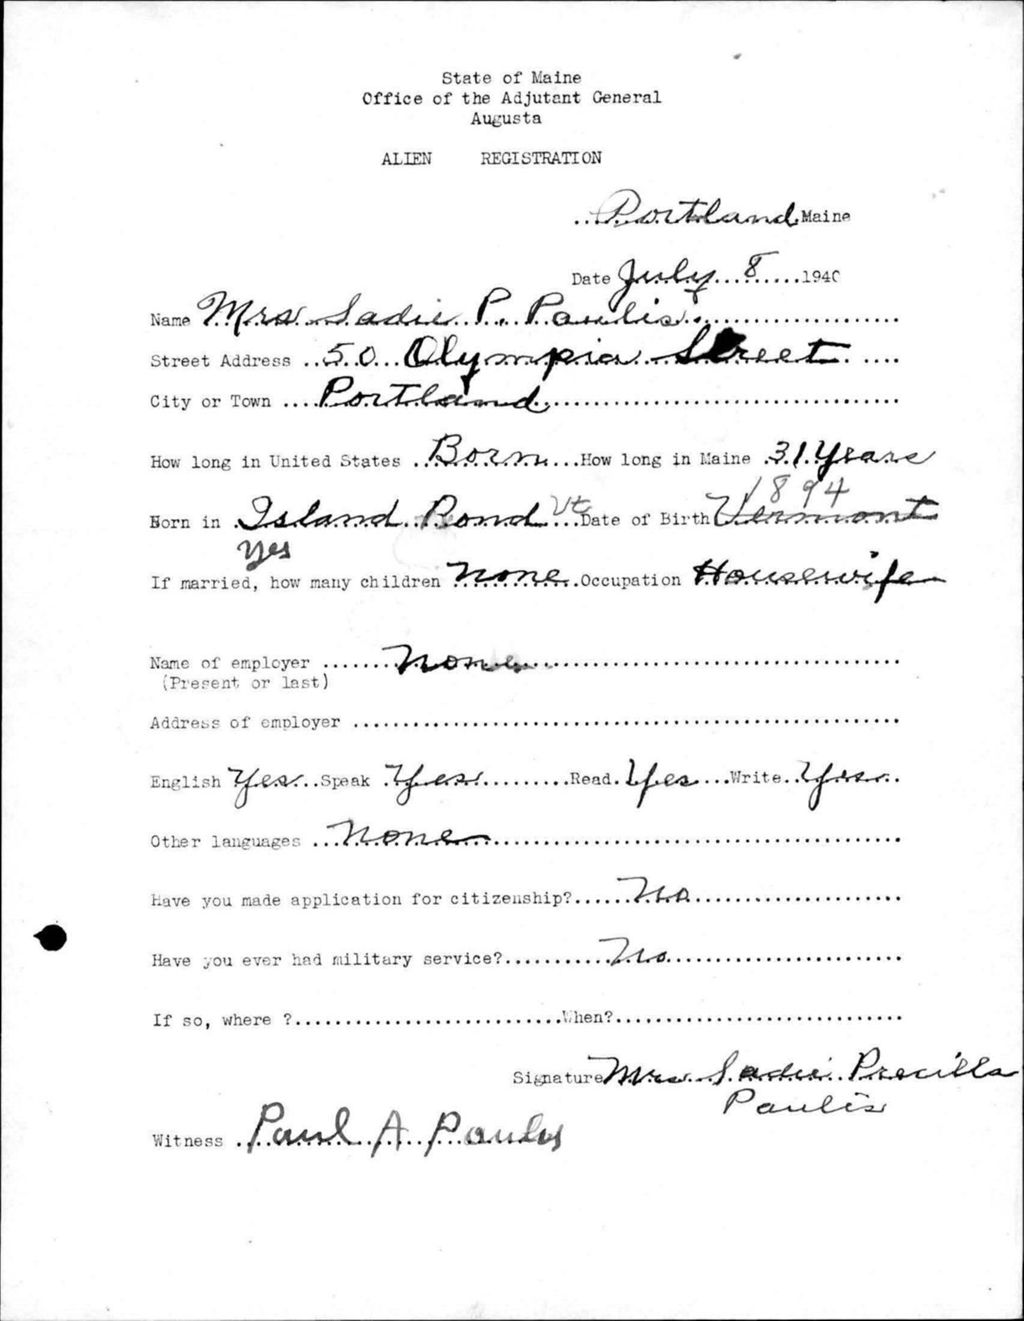 State of Maine
Office of the Adjutant General
Augusta
ALIEN REGISTRATION
..Portland, Maine
Date July 8 1940
Name Mrs. Sadie P. Paulis.
Street Address 50 Olympia Street
City or Town Portland
How long in United States Born How long in Maine 31 Years
1894
Born in Island Pond Vt Date of Birth Vermont
Yes
If married, how many children None Occupation Housewife
Name of employer None
(Present or last)
Address of employer
English Yes Speak Yes Read Yes Write Yes
Other languages None
Have you made application for citizenship? No
Have you ever had military service? No
If so, where ? When?
Signature Mrs. Sadie Precilla
Paulis
Witness Paul A Paulis